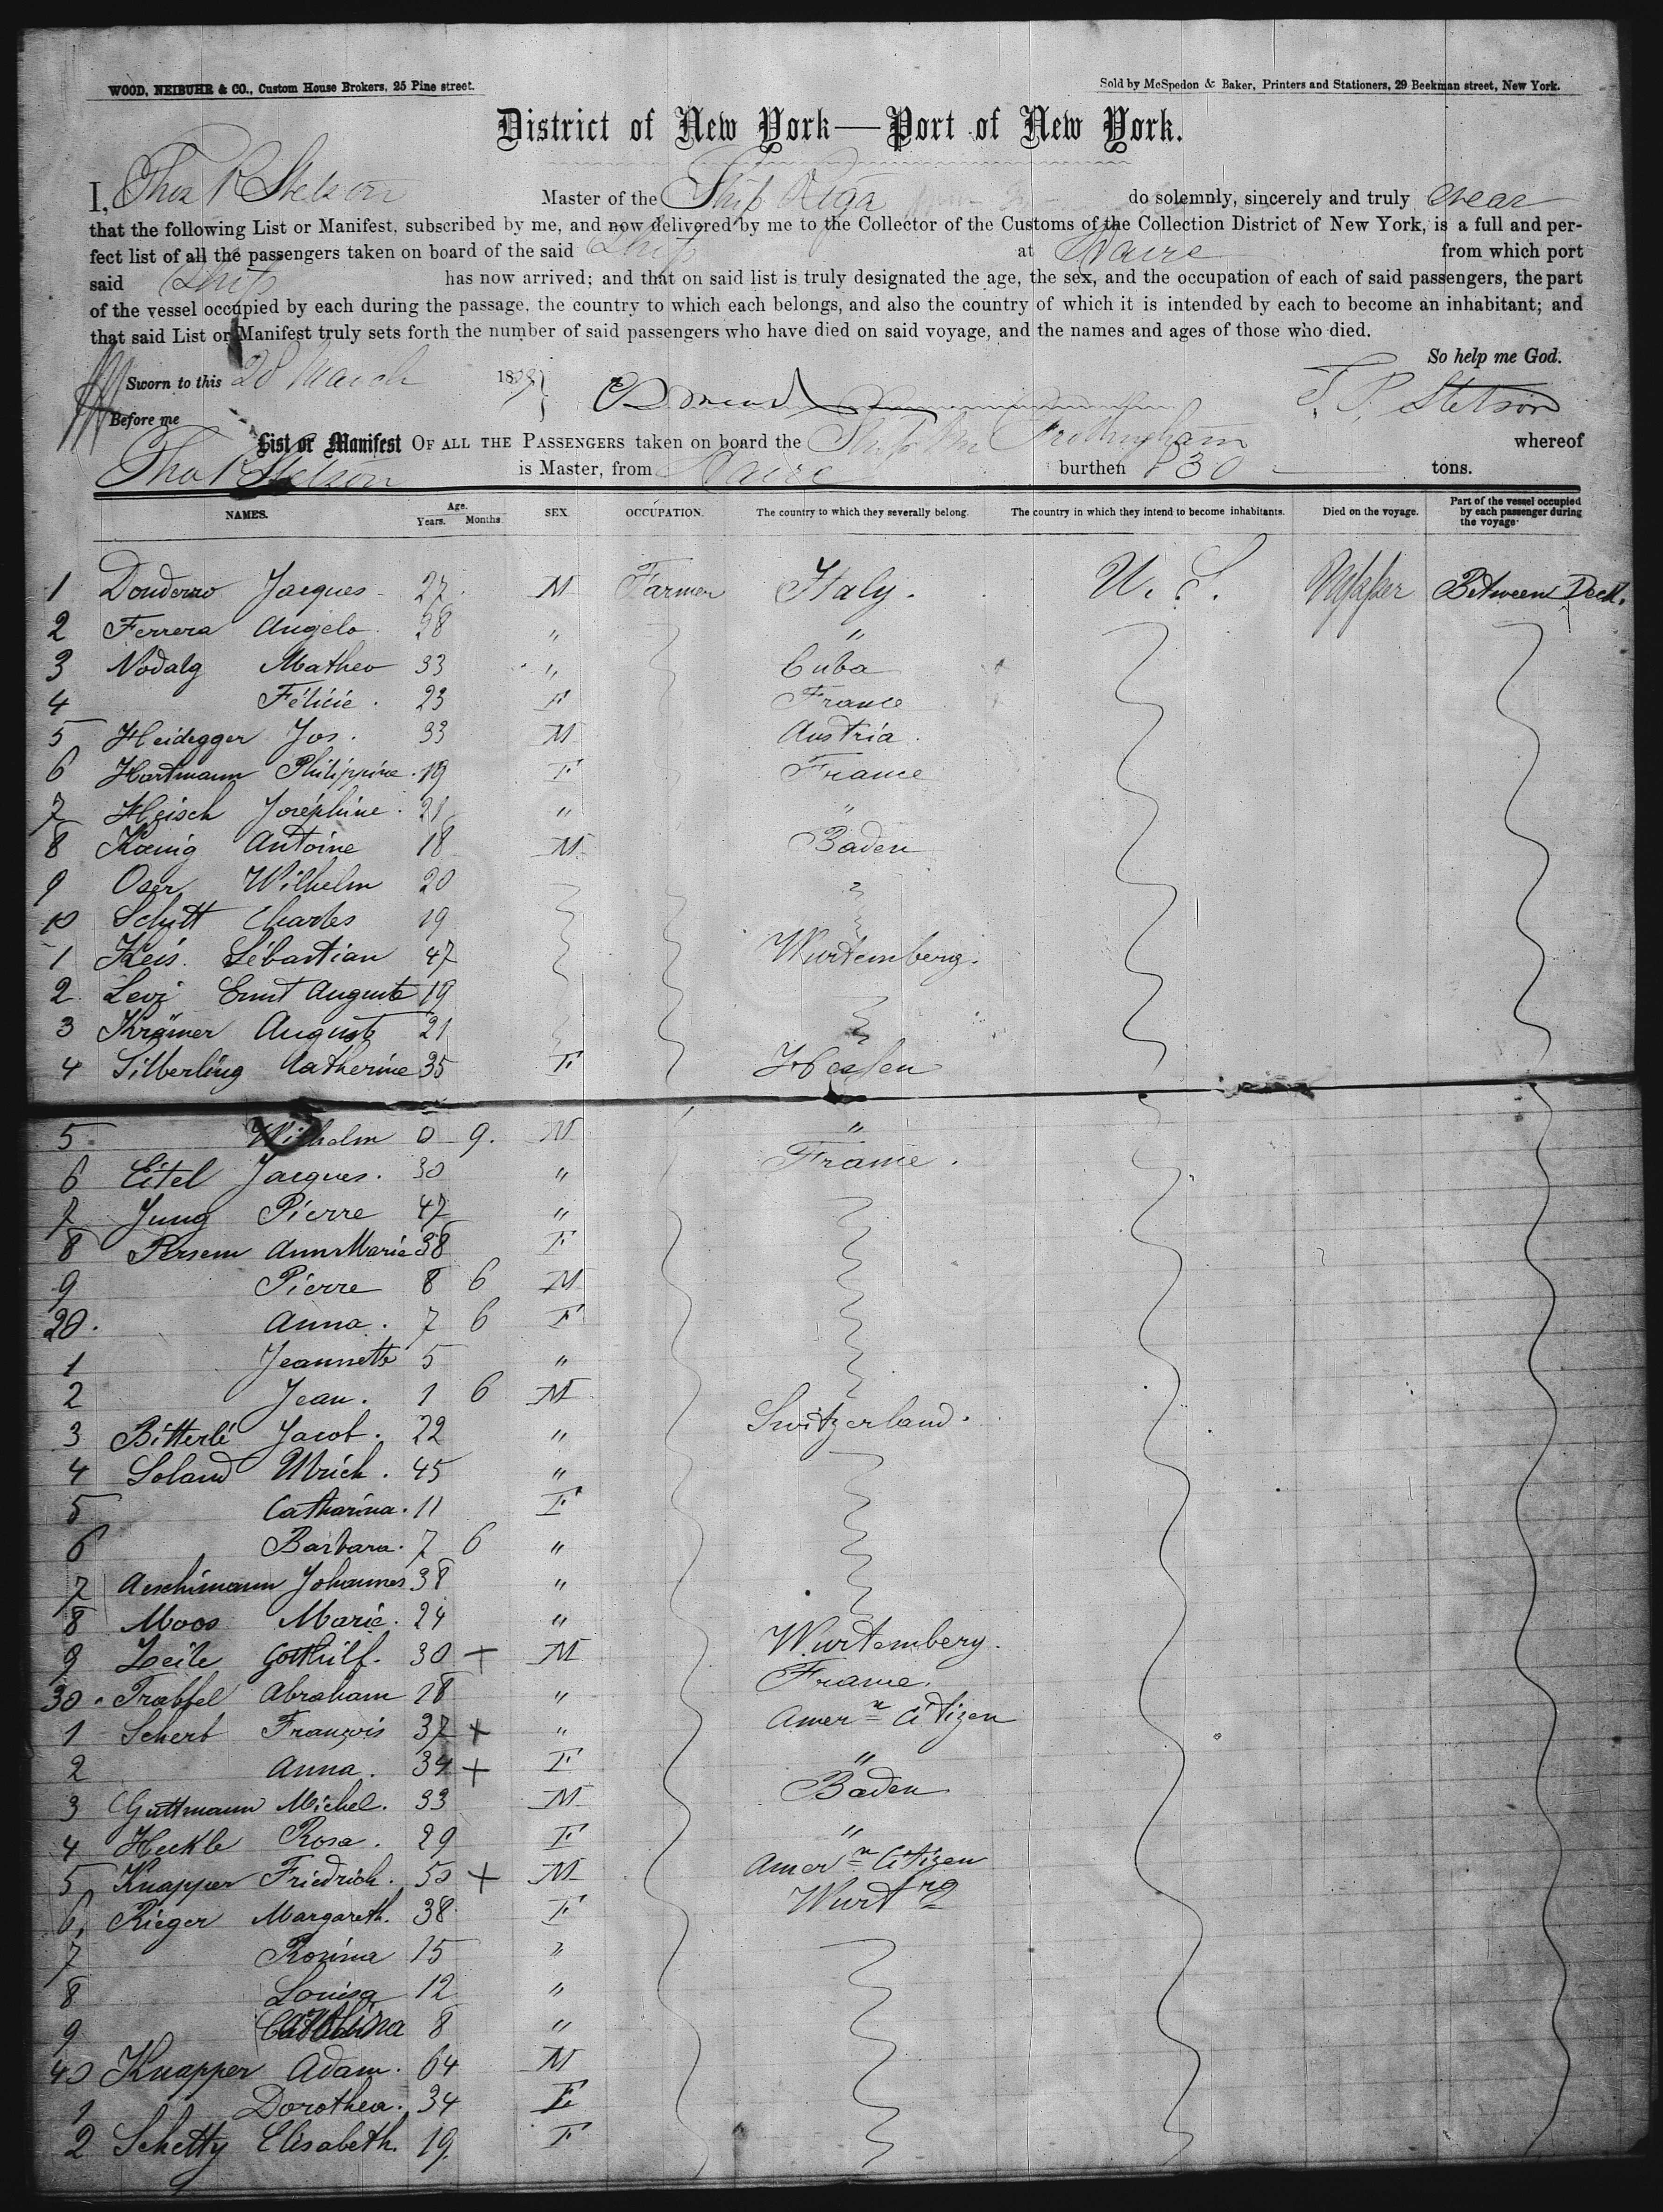 WOOD, NEIBUHR & CO., Custom House Brokers, 25 Pine street.
Sold by McSpedon & Baker, Printers and Stationers, 29 Beekman street, New York.
District of New York—Port of New York.
I, Thos P Stetson Master of the Ship do solemnly, sincerely and truly swear
that the following List or Manifest, subscribed by me, and now delivered by me to the Collector of the Customs of the Collection District of New York, is a full and per-
fect list of all the passengers taken on board of the said Ship at Havre from which port
said Ship has now arrived; and that on said list is truly designated the age, the sex, and the occupation of each of said passengers, the part
of the vessel occupied by each during the passage, the country to which each belongs, and also the country of which it is intended by each to become an inhabitant; and
that said List or Manifest truly sets forth the number of said passengers who have died on said voyage, and the names and ages of those who died.
So help me God.
Sworn to this 28 March 18 T. P. Stetson
Before me
List or Manifest OF ALL THE PASSENGERS taken on board the Ship Wm Frothingham whereof
Thos P Stetson is Master, from Havre burthen 830 tons.
NAMES. Age. Years. Months. SEX. OCCUPATION. The country to which they severally belong. The country in which they intend to become inhabitants. Died on the voyage. Part of the vessel occupied by each passenger during the voyage.
1 Donderro Jacques 27 M Farmer Italy. U. S. Upper Between Deck.
2 Ferrera Angelo 28 " "
3 Nodalg Matheo 33 " Cuba
4 Félicié 23 F France
5 Heidegger Jos. 33 M Austria
6 Hartmann Philippine 19 F France
7 Heisch Joséphine 21 " "
8 Kœnig Antoine 18 M Baden
9 Oser Wilhelm 20 "
10 Schitt Charles 19
1 Keis Sébastian 47 Wurtemberg.
2 Levi Ernst Auguste 19
3 Krämer Auguste 21
4 Silberling Catherine 35 F Hessen
5 Wilhelm 0 9. M "
6 Eitel Jacques. 30 " France.
7 Jung Pierre 47 "
8 Persem Anna Maria 38 F
9 Pierre 8 6 M
20. Anna. 7 6 F
1 Jeannette 5 "
2 Jean. 1 6 M
3 Bitterlé Jacob. 22 " Switzerland.
4 Soland Ulrich. 45 "
5 Catharina. 11 F
6 Barbara. 7 6 "
7 Aeschimann Johannes 38 "
8 Moos Marie. 24 "
9 Zeile Gotthilf. 30 + M Wurtemberg.
30. Abraham 28 " France.
1 Scherb François 37 + " Amern Citizen
2 Anna. 34 + F "
3 Guttmann Michel. 33 M Baden
4 Heckle Rosa. 29 F "
5 Knapper Friedrich. 50 + M Amern Citizen
6, Rieger Margareth. 38 F Wurtrg
7 Rosina 15 "
8 Louisa 12 "
9 8 "
40 Knapper Adam. 64 M
1 Dorothea. 34 F
2 Schetty Elisabeth. 19. F